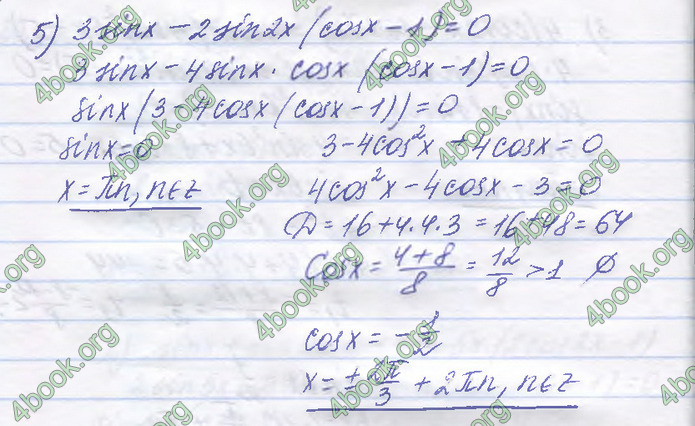 5) 3sinx - 2sin2x (cosx - 1) = 0
3sinx - 4sinx · cosx (cosx - 1) = 0
sinx (3 - 4cosx (cosx - 1)) = 0
sinx = 0 3 - 4cos²x + 4cosx = 0
x = πn, n∈z 4cos²x - 4cosx - 3 = 0
D = 16 + 4·4·3 = 16 + 48 = 64
Cosx = (4+8)/8 = 12/8 > 1 ∅
cosx = -1/2
x = ± 2π/3 + 2πn, n∈z
4book.org
4book.org
4book.org
4book.org
4book.org
4book.org
4book.org
4book.org
4book.org
4book.org
4book.org
4book.org